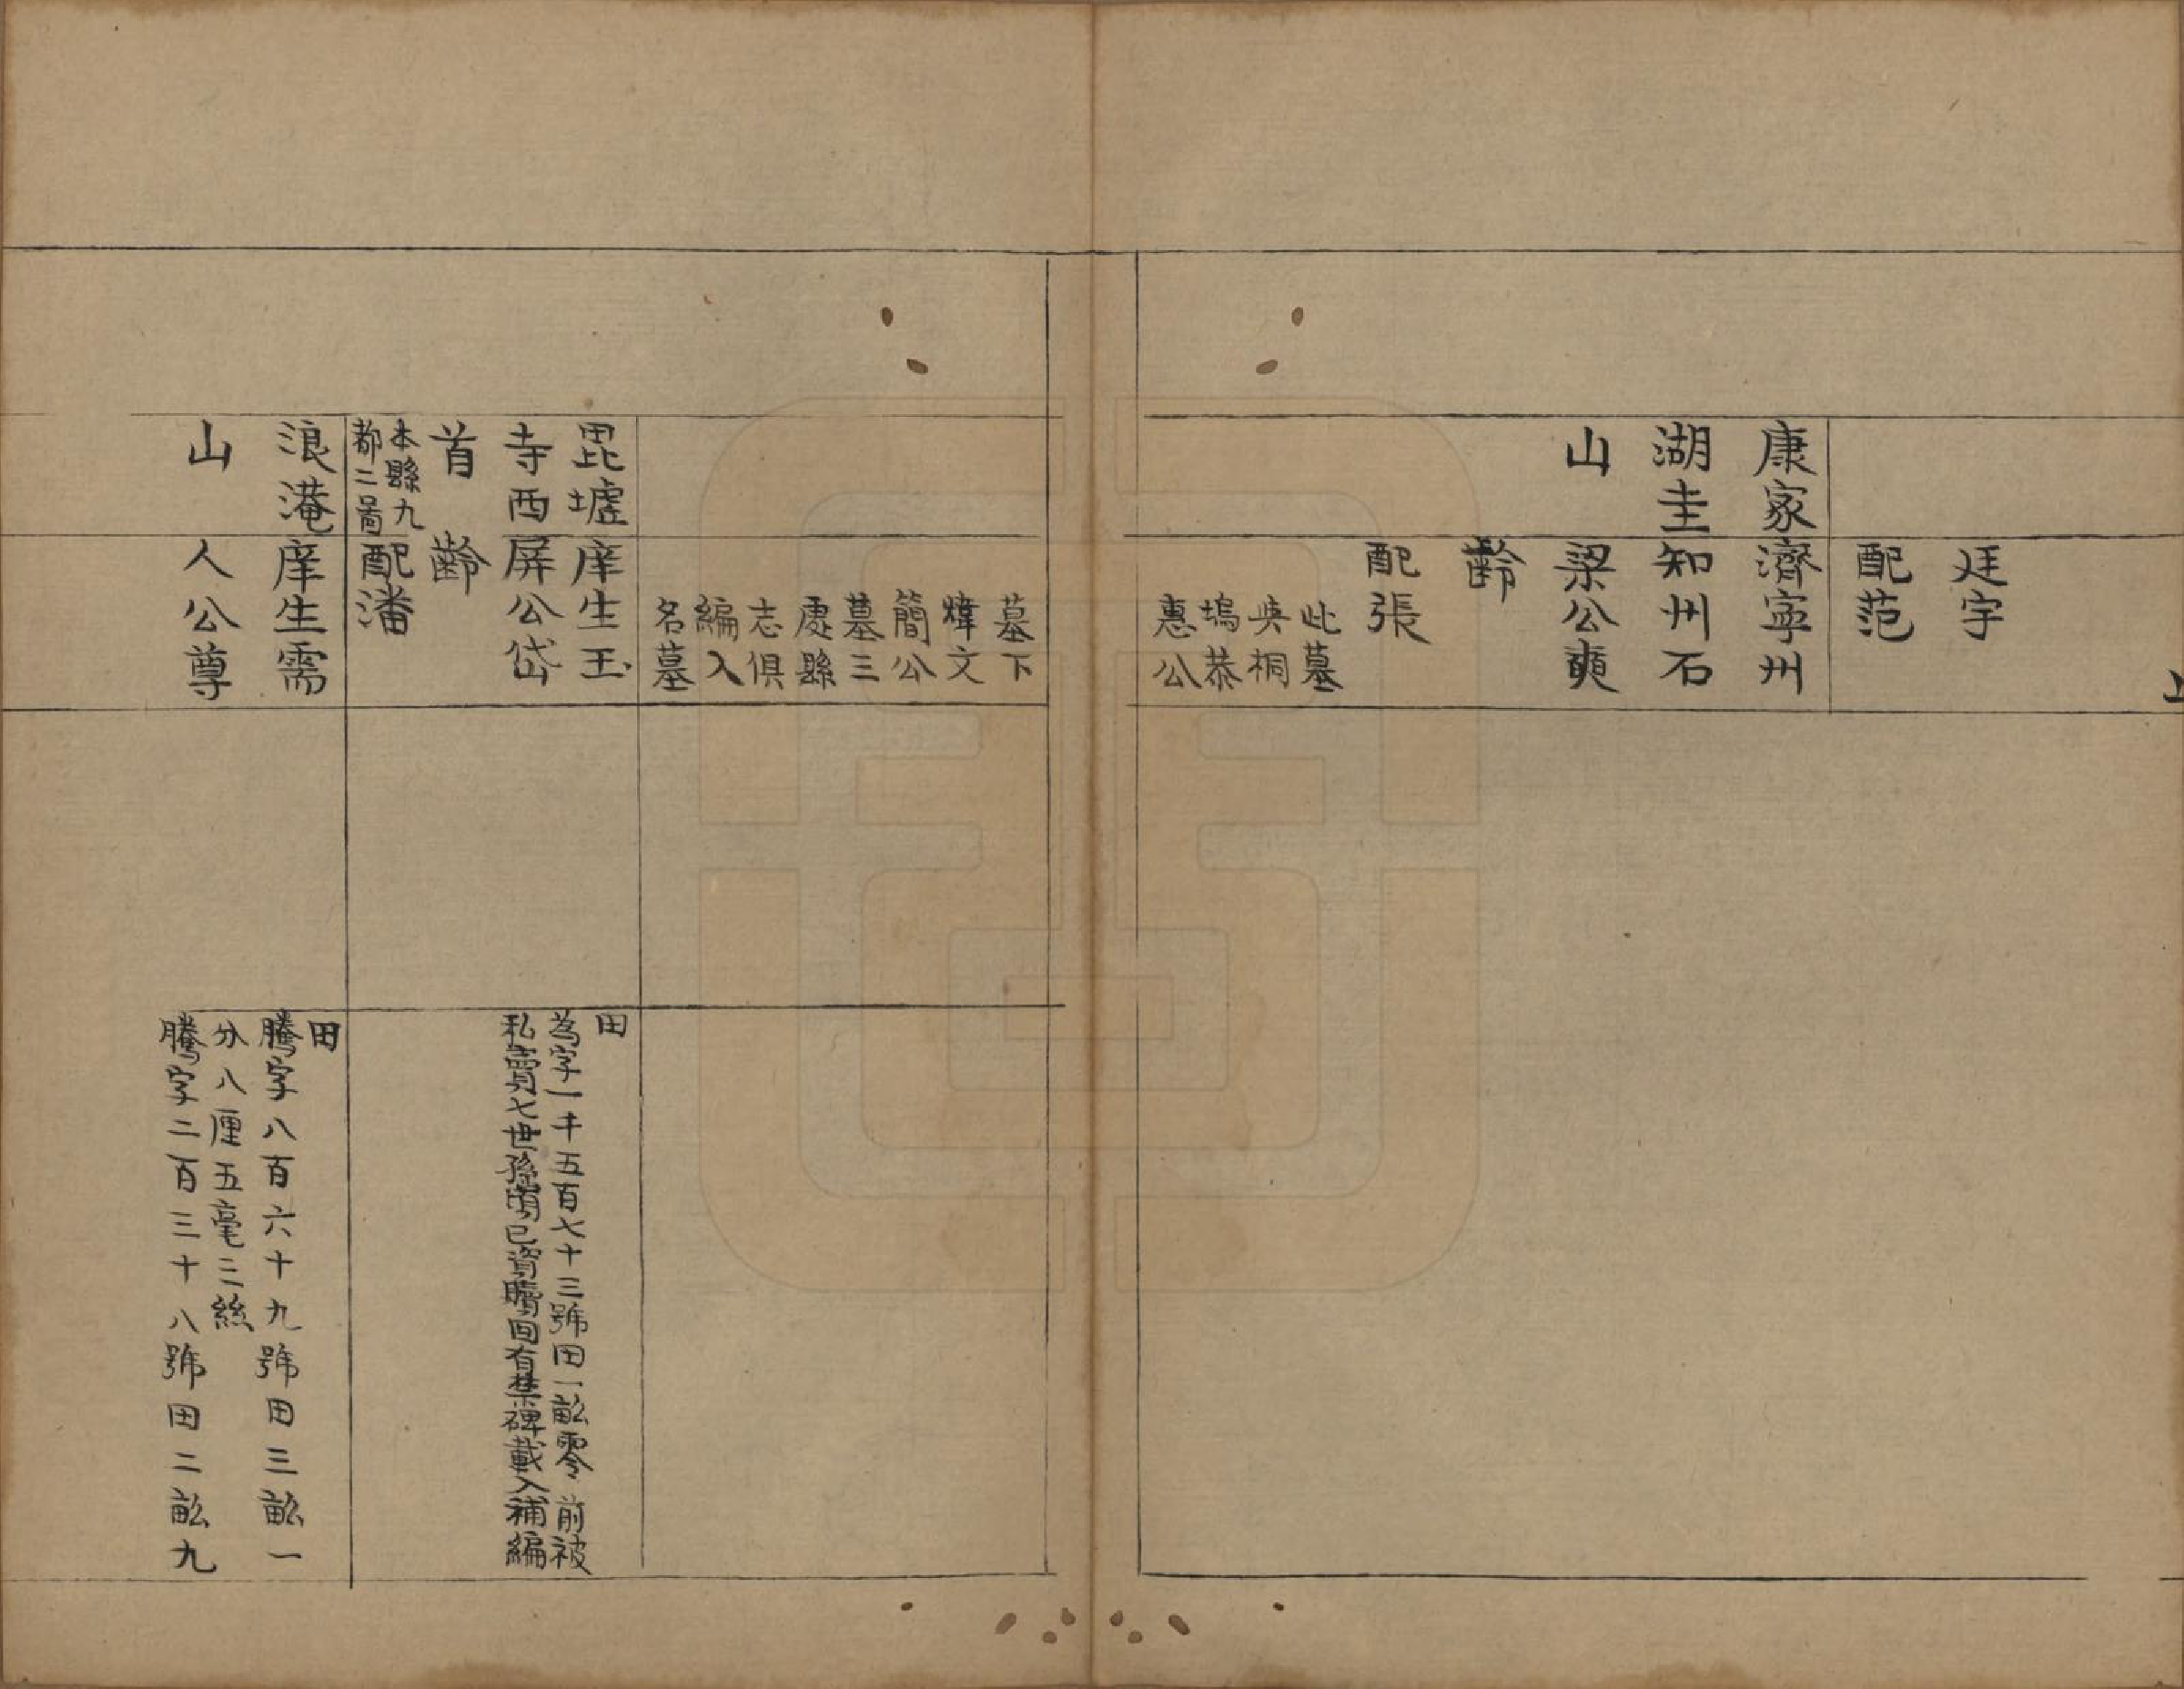 廷宇
配范
康家
湖圭
山
濟寜州
知州石
梁公奭
齡
配張
此墓
吳桐
塢恭
惠公
墓下
煒文
簡公
墓三
處縣
志俱
編入
名墓
毘墟
寺西
首
本縣九
都二啚
庠生玉
屏公岱
齡
配潘
田
為字一千五百七十三號田一畝零 前被
私賣七世孫 已資贖回有禁碑載入補編
浪淹
山
庠生需
人公尊
田
騰字八百六十九號田三畝一
分八厘五毫三絲
騰字二百三十八號田二畝九